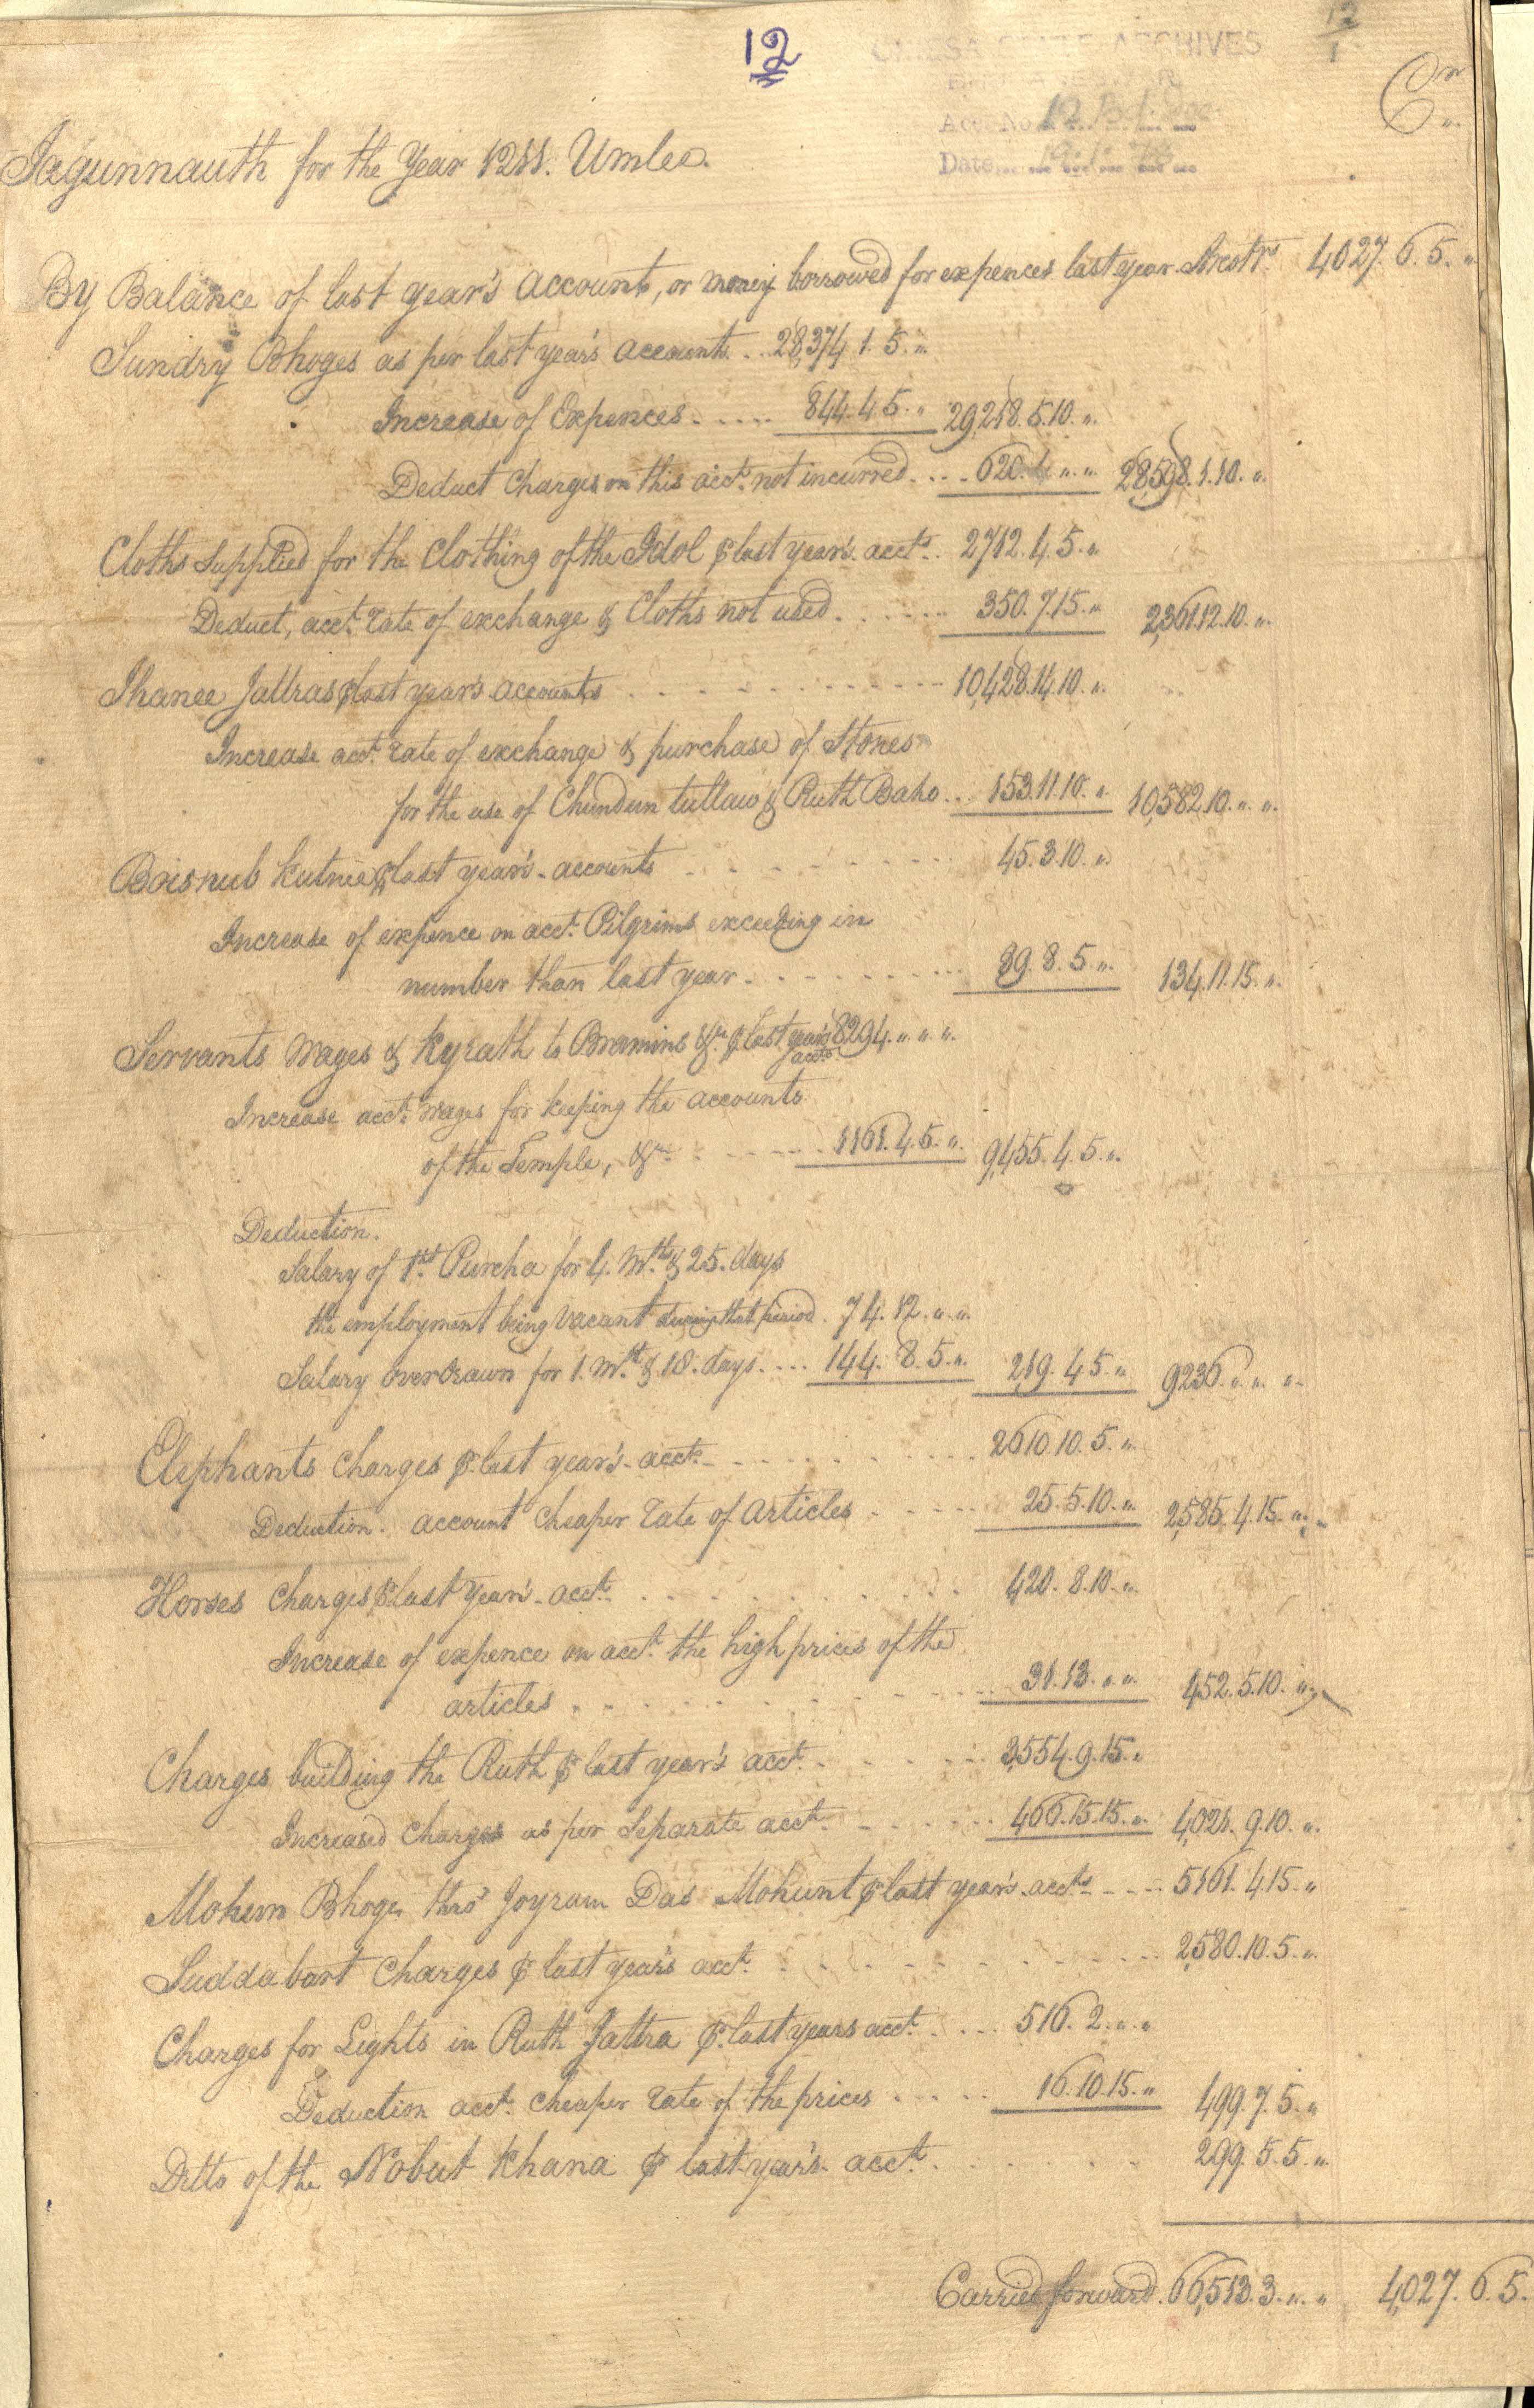 12
12
1
ARCHIVES
Acc. No
Date
Cr
Jagunnauth for the Year 1211. Umlee.
By Balance of last year's account, or money borrowed for expences last year Arcot Rs 4027.6.5.„
Sundry Bhoges as per last year's accounts .. 28,374.1.5.„
Increase of Expences ..... 844.4.5.„ 29,218.5.10.„
Deduct Charges on this acct. not incurred .... 620.4.„.„ 28,598.1.10.„
Cloths supplied for the Clothing of the Idol ⅌ last year's acct. . 2712.4.5.„
Deduct, acct. rate of exchange & Cloths not used ...... 350.7.15.„ 2,361.12.10.„
Jhanee Jattras ⅌ last year's accounts .......... 10,428.14.10.„
Increase acct. rate of exchange & purchase of Stores
for the use of Chundun tullaw & Ruth Baho ... 153.11.10.„ 10,582.10.„.„
Boisnub Kutnee ⅌ last year's accounts ........ 45.3.10.„
Increase of expence on acct. Pilgrims exceeding in
number than last year ......... 89.8.5.„ 134.11.15.„
Servants Wages & Kyrath to Bramins &ca. ⅌ last year's accts 8294.„.„.„
Increase acct. Wages for keeping the accounts
of the Temple, &ca. ...... 1161.4.5.„ 9,455.4.5.„
Deduction.
Salary of 1st. Purcha for 4. Mths & 25. days
the employment being vacant during that period . 74.12.„.„
Salary overdrawn for 1. Mth. & 18. days .... 144.8.5.„ 219.4.5.„ 9236.„.„.„
Elephants Charges ⅌ last year's acct. ........ 2610.10.5.„
Deduction. account Cheaper rate of articles ..... 25.5.10.„ 2,585.4.15.„
Horses Charges ⅌ last Year's acct. ........ 420.8.10.„
Increase of expence on acct. the high prices of the
articles .......... 31.13.„.„ 452.5.10.„
Charges building the Ruth ⅌ last year's acct. ...... 3,554.9.15.„
Increased Charges as per Separate acct. ...... 466.15.15.„ 4,021.9.10.„
Mohun Bhoge thro' Joyram Das Mohunt ⅌ last year's accts .... 5161.4.15.„
Suddabart Charges ⅌ last year's acct. .......... 2,580.10.5.„
Charges for Lights in Ruth Jattra ⅌ last years acct. .... 516.2.„.„
Deduction acct. Cheaper rate of the prices ..... 16.10.15.„ 499.7.5.„
Ditto of the Nobut Khana ⅌ last year's acct. ....... 299.5.5.„
Carried forward. 66,513.3.„.„ 4,027.6.5.